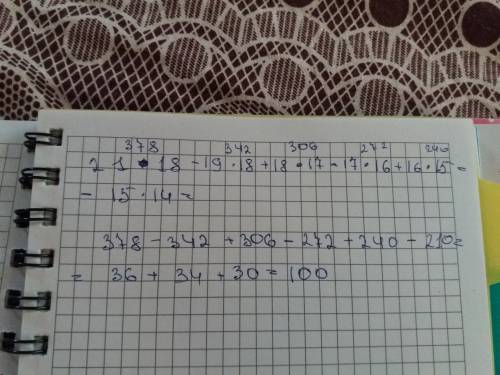 378 342 306 272 240
21 · 18 - 19 · 18 + 18 · 17 - 17 · 16 + 16 · 15 =
- 15 · 14 =
378 - 342 + 306 - 272 + 240 - 210 =
= 36 + 34 + 30 = 100